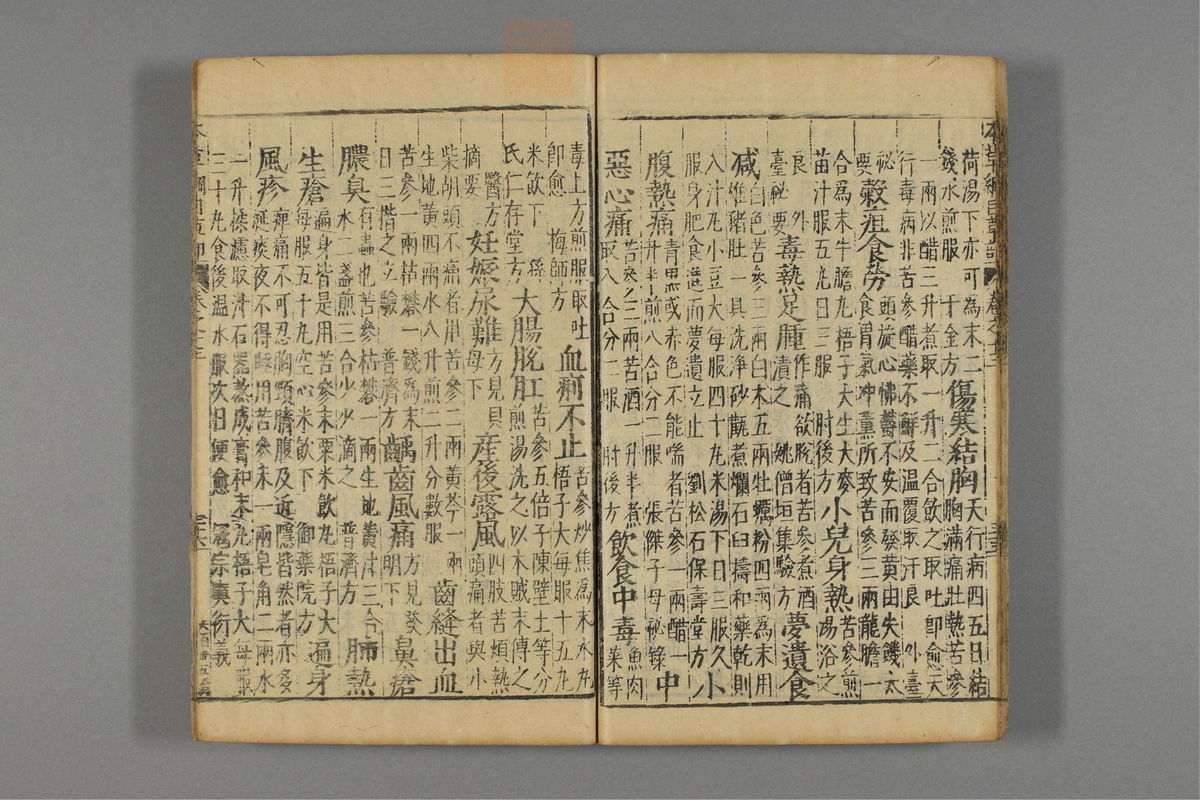 荷湯下亦可為末二錢水煎服 千金方 傷寒結胸 天行病四五日結胸滿痛壯熱苦參
一兩以醋三升煮取一升二合飲之取吐即愈天行毒病非苦參醋藥不解及温覆取汗良 外臺
秘要 穀疸食勞 頭旋心怫鬱不安而發黃由失饑大食胃氣冲熏所致苦參三兩龍膽一
合為末牛膽丸梧子大生大麥苗汁服五丸日三服 肘後方 小兒身熱 苦參煎湯浴之
良 外臺秘要 毒熱足腫 作痛欲脫者苦參煮酒漬之 姚僧垣集驗方 夢遺食
減 白色苦參三兩白朮五兩牡蠣粉四兩為末用雄豬肚一具洗淨砂觀煮爛石臼擣和藥乾則
入汁丸小豆大每服四十丸米湯下日三服久服身肥食進而夢遺立止 劉松石保壽堂方 小
腹熱痛 青黑或赤色不能喘者苦參一兩醋一升半煎八合分二服 張傑子母秘錄 中
惡心痛 苦參三兩苦酒一升半煮取八合分二服 肘後方 飲食中毒 魚肉菜等
毒上方煎服取吐即愈 梅師方 血痢不止 苦參炒焦為末水丸梧子大每服十五丸
米飲下 孫氏仁存堂方 大腸脫肛 苦參五倍子陳壁土等分煎湯洗之以木賊末傅之
醫方摘要 妊娠尿難 方見貝母下 產後露風 四肢苦煩熱頭痛者與小
柴胡頭不痛者用苦參二兩黃芩一兩生地黃四兩水八升煎二升分數服 齒縫出血
苦參一兩枯礬一錢為末日三揩之立驗 普濟方 齲齒風痛 方見發明下 鼻瘡
膿臭 有蟲也苦參枯礬一兩生地黃汁三合水二盞煎三合少少滴之 普濟方 肺熱
生瘡 遍身皆是用苦參末粟米飲丸梧子大每服五十丸空心米飲下 御藥院方 遍身
風疹 痺痛不可忍胸頸臍腹及近隱皆然者亦多涎痰夜不得睡用苦參末一兩皂角二兩水
一升揉濾取汁石器熬成膏和末丸梧子大每服三十丸食後温水服次日便愈 寇宗奭衍義